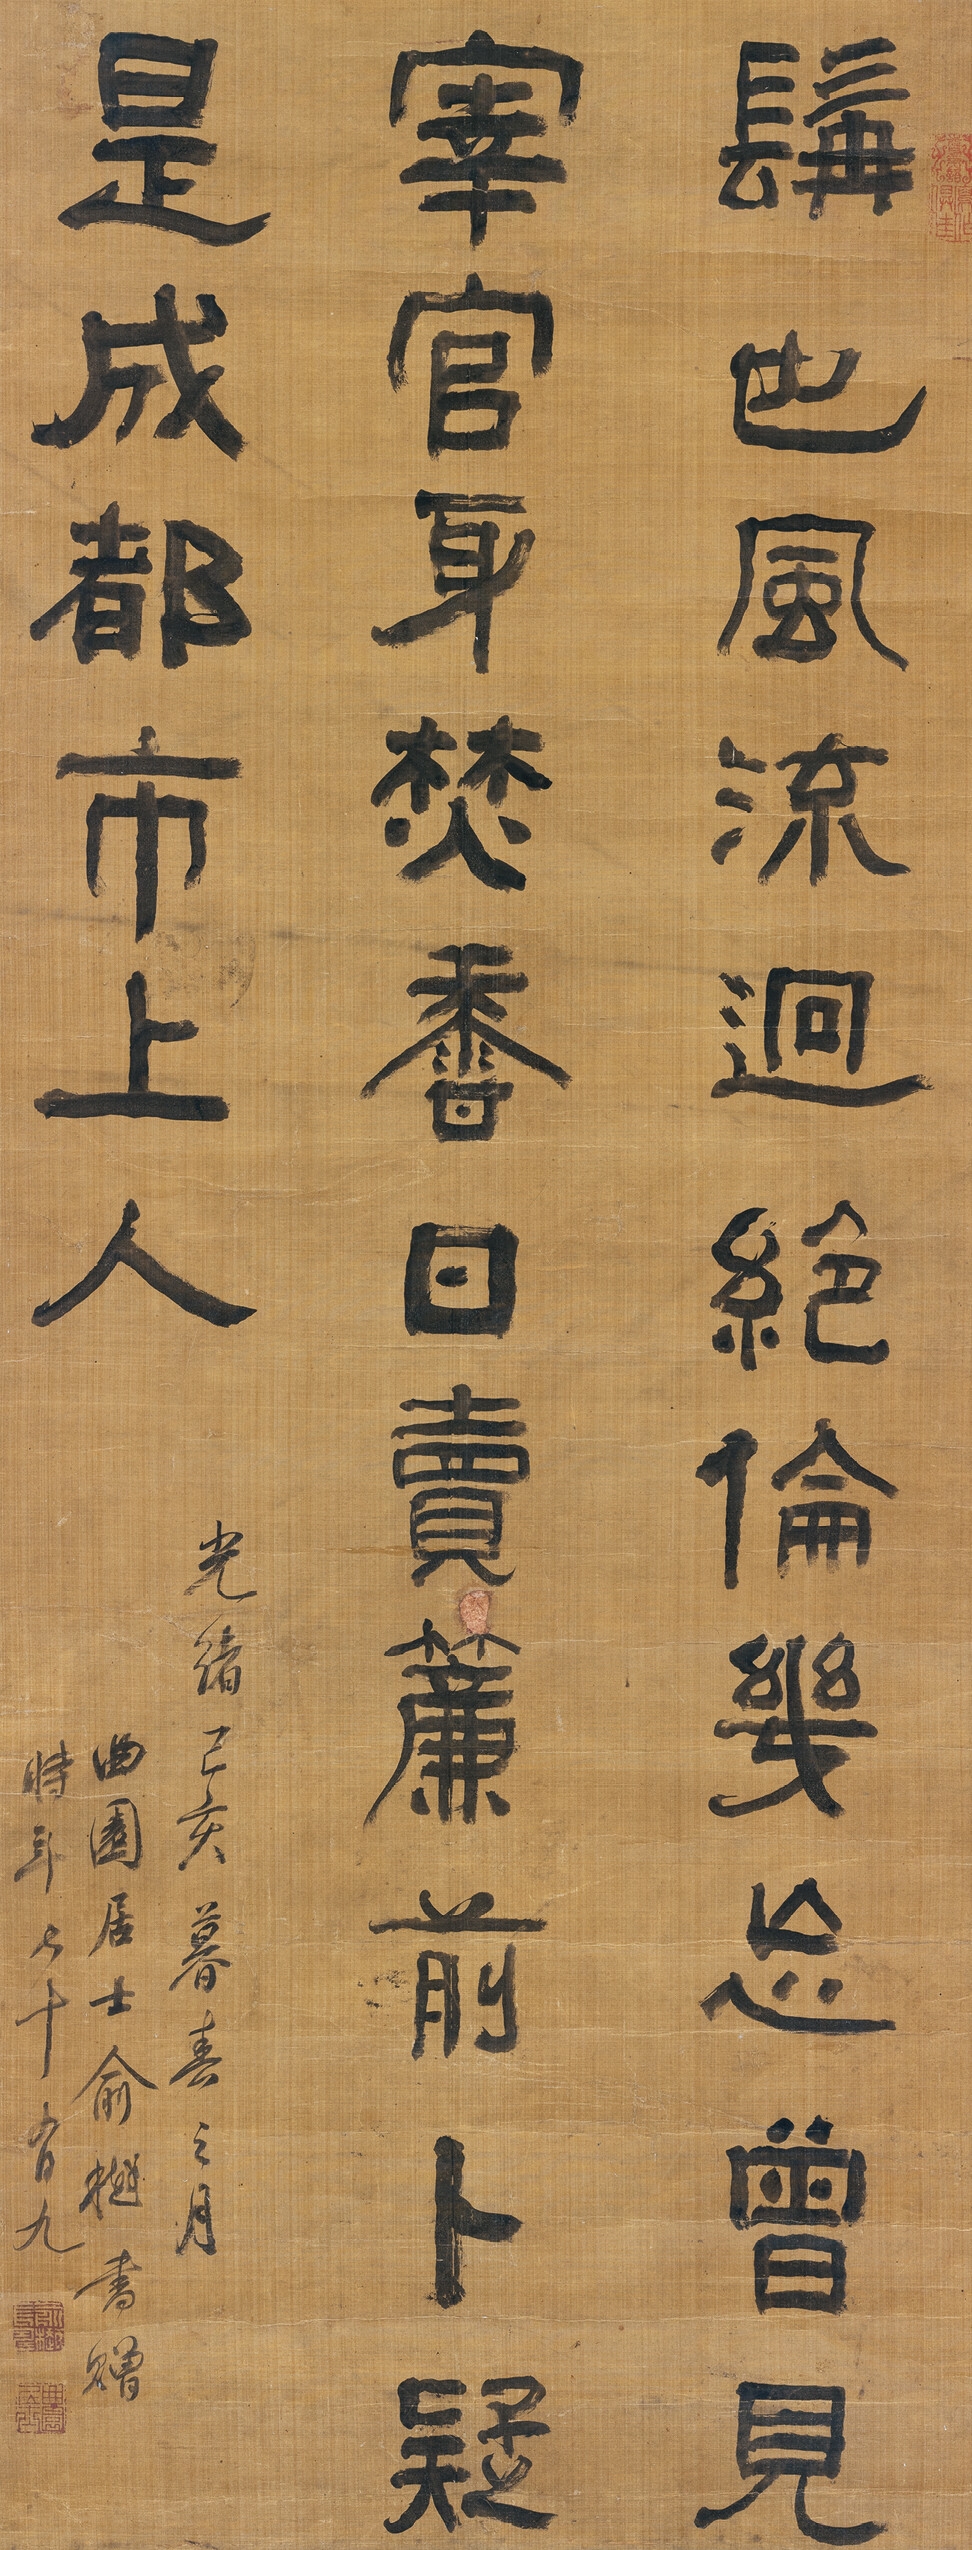 髯也風流迥絕倫幾忘曾見
宰官身焚香日賣簾前卜疑
是成都市上人
光緒己亥暮春之月
曲園居士俞樾書贈
時年七十有九